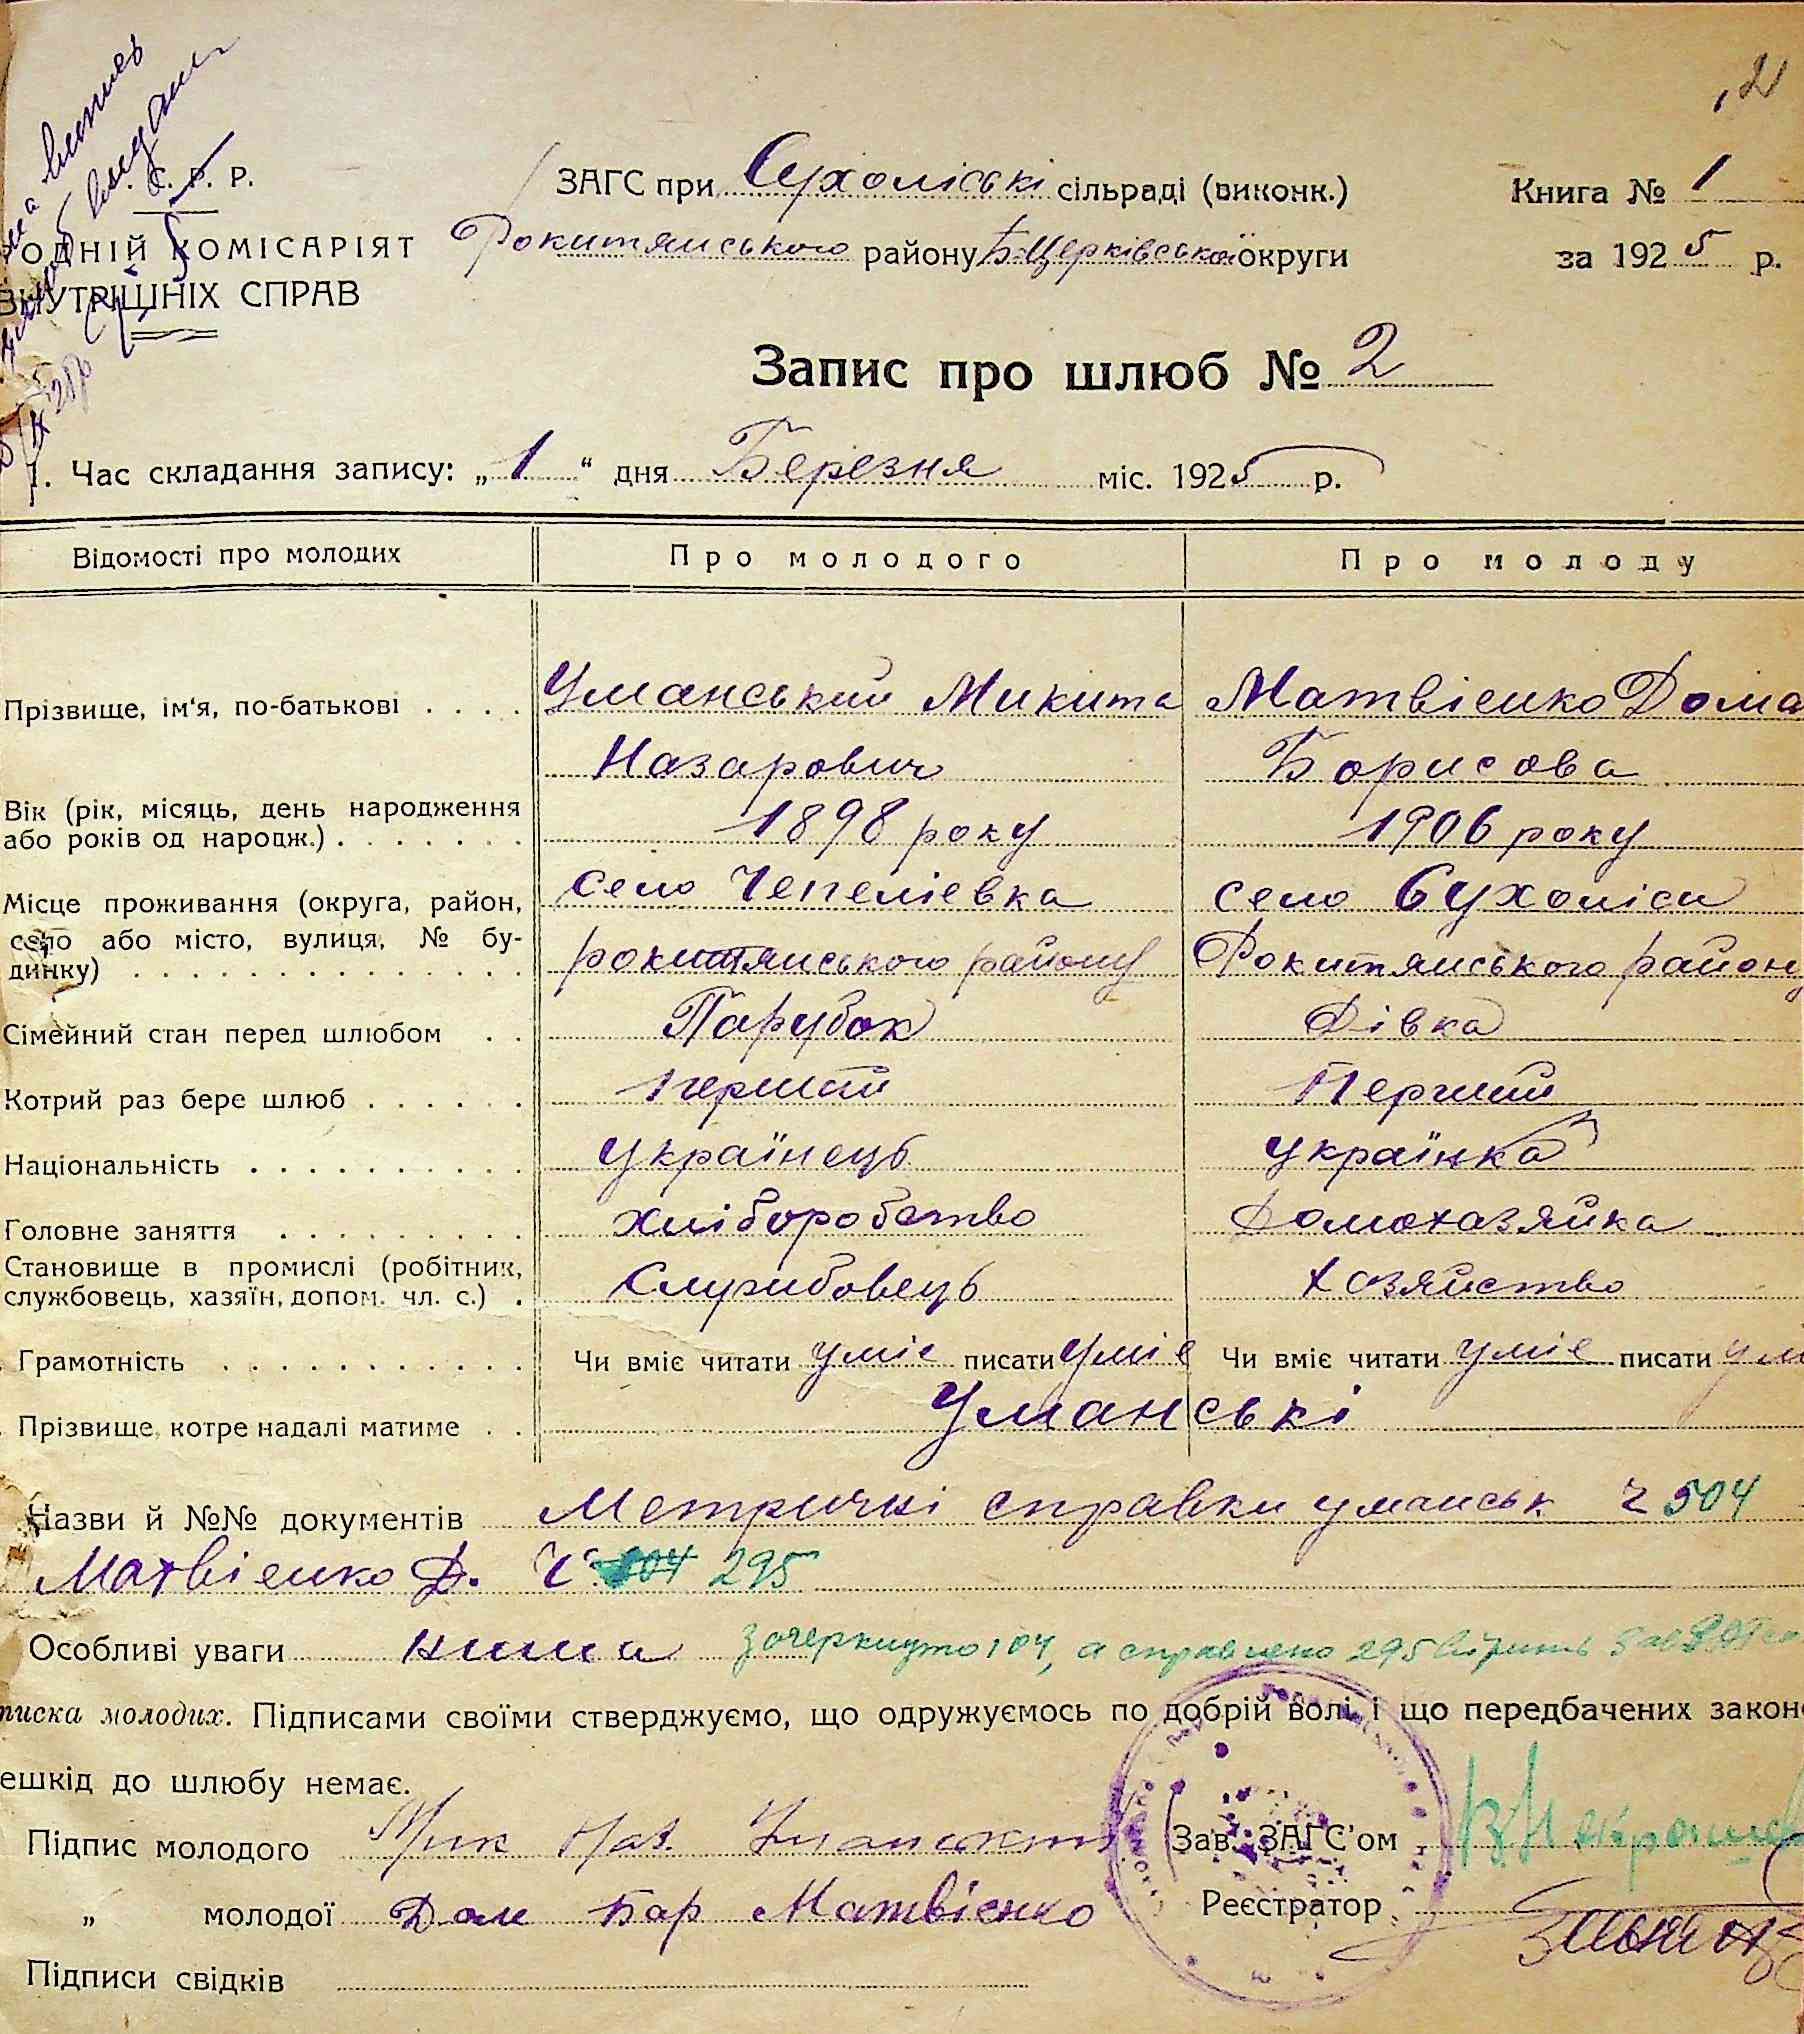 ,2
. С. Р. Р.
ЗАГС при Сухоліські сільраді (виконк.) Книга № 1
ОДНІЙ КОМІСАРІЯТ Рокитянського району Б-Церківської округи за 1925 р.
ВНУТРІШНІХ СПРАВ
Запис про шлюб № 2
1. Час складання запису: „1“ дня Березня міс. 1925 р.
Відомості про молодих Про молодого Про молоду
Прізвище, ім‘я, по-батькові . . . . Уманський Микита Матвієнко Дома
Назарович Борисова
Вік (рік, місяць, день народження
або років од народж.) . . . . . . . 1898 року 1906 року
Місце проживання (округа, район, село Чепеліевка село Сухоліси
село або місто, вулиця, № бу-
динку) . . . . . . . . . . . . . . . рокитянського району Рокитянського району
Сімейний стан перед шлюбом . . Парубок Дівка
Котрий раз бере шлюб . . . . . . перший Перший
Національність . . . . . . . . . . українець українка
Головне заняття . . . . . . . . . хліборобство Домохазяйка
Становище в промислі (робітник,
службовець, хазяїн, допом. чл. с.) . Службовець хозяйство
Грамотність . . . . . . . . . . . Чи вміє читати уміє писати уміє Чи вміє читати уміє писати умі
Прізвище, котре надалі матиме . . Уманські
Назви й №№ документів Метричні справки уманськ Ч 504
Матвієнко Д. Ч 104 295
Особливі уваги нима зачеркнуто 104, а справлено 295
писка молодих. Підписами своїми стверджуємо, що одружуємось по добрій волі і що передбачених законо
ешкід до шлюбу немає.
Підпис молодого Мик Наз. Уманський Зав. ЗАГС'ом
„ молодої Дом Бар Матвієнко Реєстратор
Підписи свідків